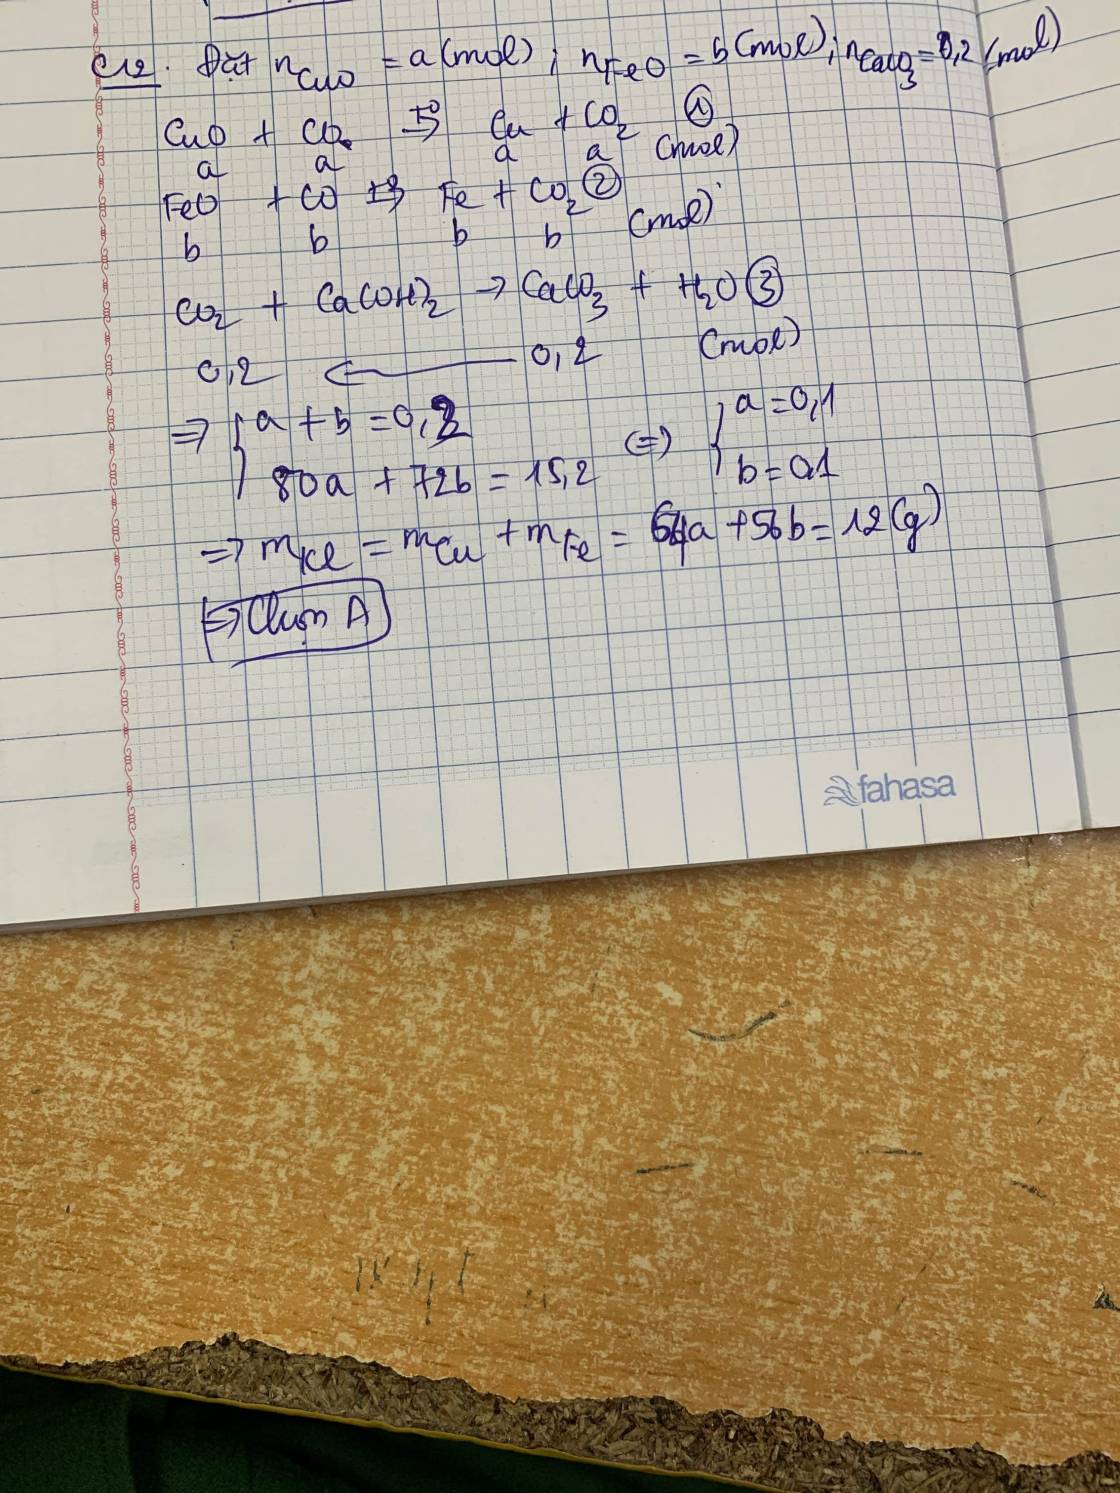 C12. Đặt nCuO = a (mol) ; nFeO = b (mol) ; nCaCO3 = 0,2 (mol)
CuO + CO t° → Cu + CO2 ①
a a a a (mol)
FeO + CO t° → Fe + CO2 ②
b b b b (mol)
CO2 + Ca(OH)2 → CaCO3 + H2O ③
0,2 ← 0,2 (mol)
⇒ { a + b = 0,2 ⇔ { a = 0,1
80a + 72b = 15,2 b = 0,1
⇒ mKl = mCu + mFe = 64a + 56b = 12 (g)
⇒ Chọn A
fahasa